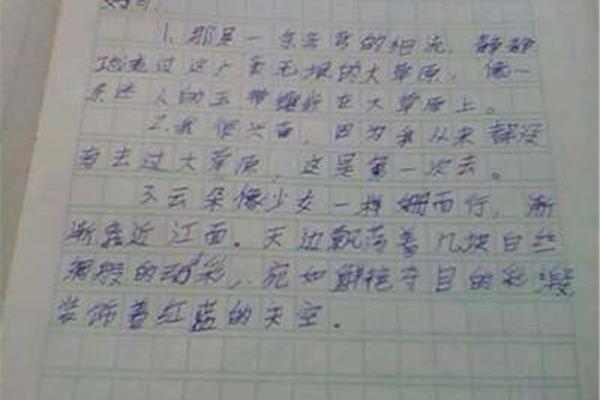 好句:
1.那是一条云茗的细流,静静
地流过这广袤无垠的大草原,像一
条迷人的玉带镶嵌在大草原上。
2.我很兴奋,因为我从来都没
有去过大草原,这是第一次去。
3.云朵像少女一样姗而行,渐
渐靠近江面。天边飘荡着几块白丝
绸般的动彩,宛如鲜艳夺目的彩缎
装饰着红蓝的天空。